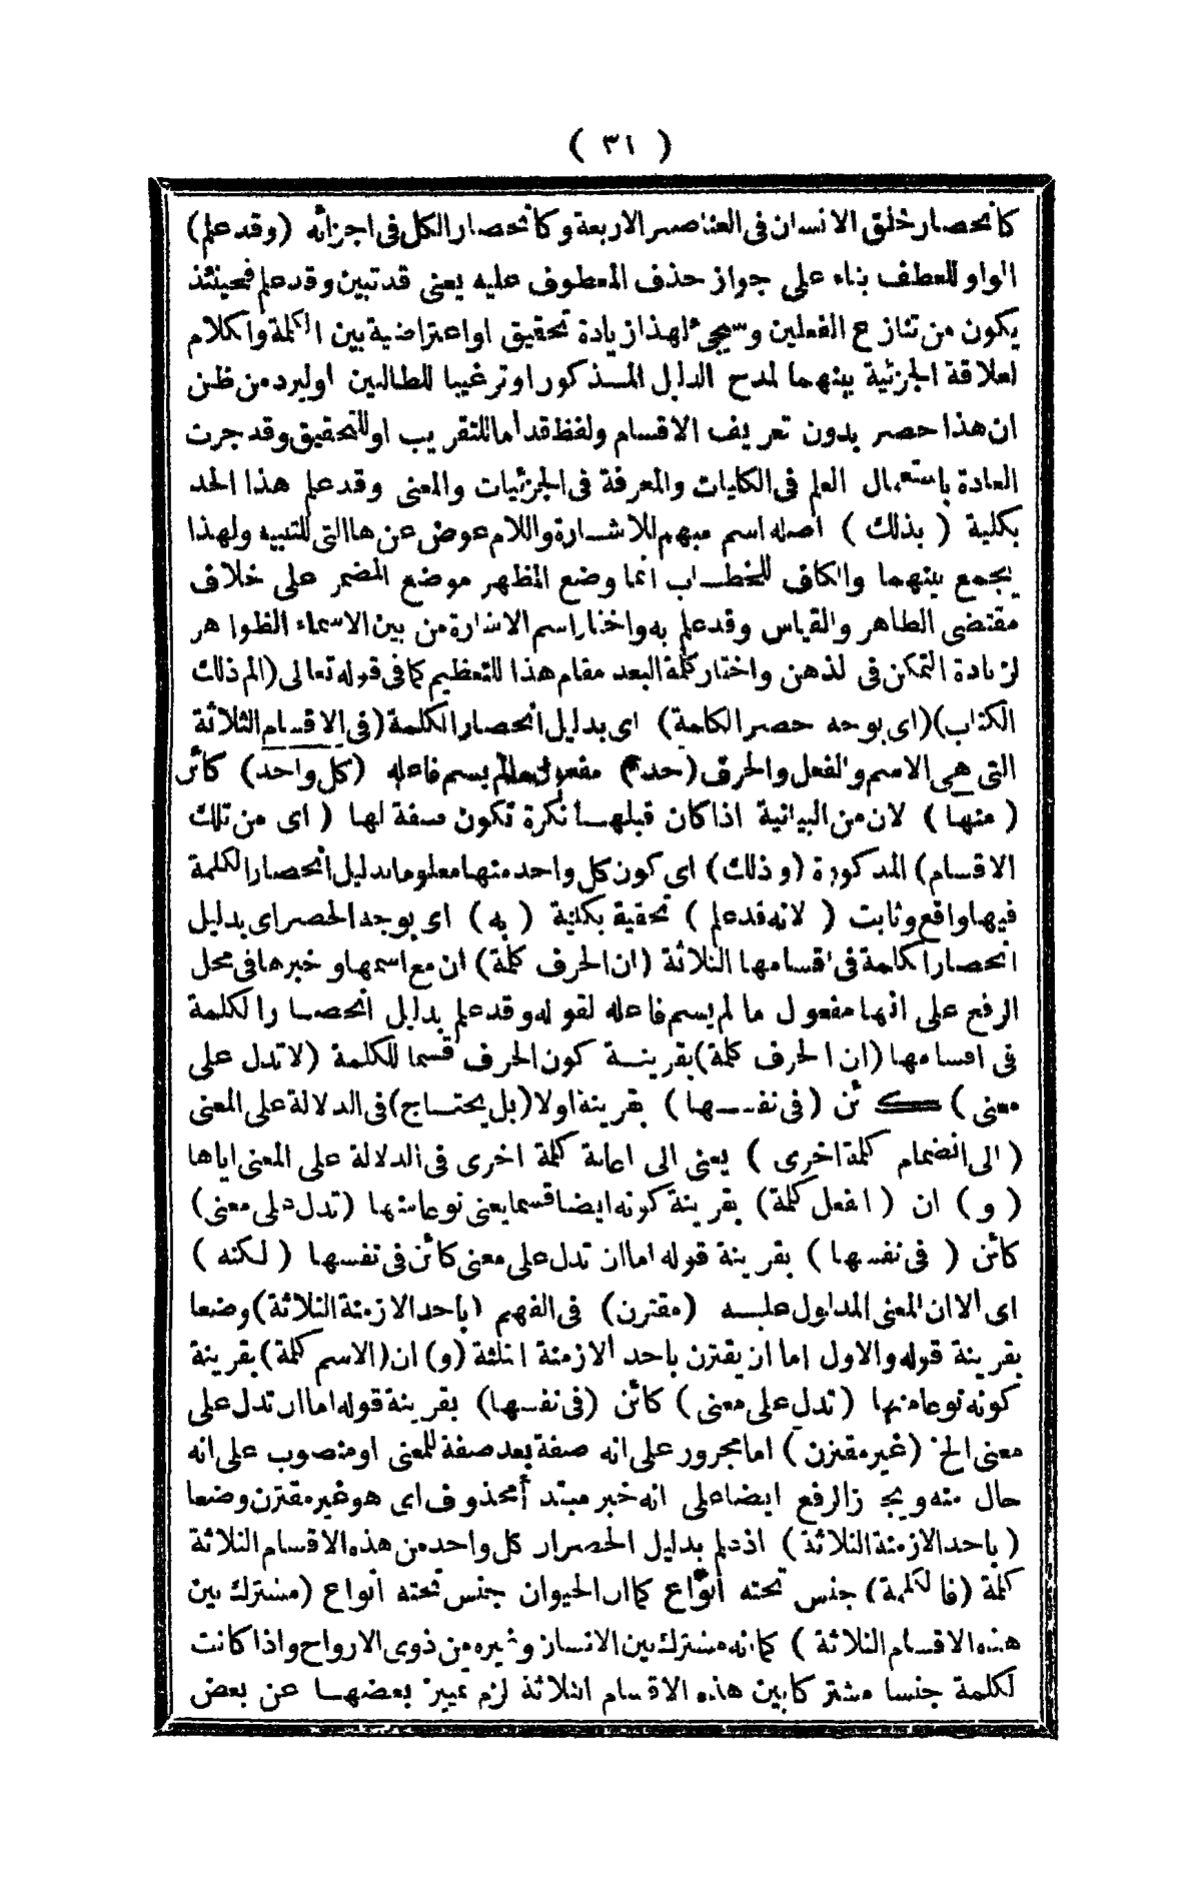 ( ٣١ )
كانحصار خلق الانسان فى العناصر الاربعة وكانحصار الكل فى اجزائه (وقد علم)
الواو للعطف بناء على جواز حذف المعطوف عليه يعنى قد تبين وقد علم فحينئذ
يكون من تنازع الفعلين وسيجئ لهذا زيادة تحقيق او اعتراضية بين الكلمة والكلام
لعلاقة الجزئية بينهما لمدح الدليل المذكور او ترغيبا للطالبين او لرد من ظن
ان هذا حصر بدون تعريف الاقسام ولفظ قد اما للتقريب او للتحقيق وقد جرت
العادة باستعمال العلم فى الكليات والمعرفة فى الجزئيات والمعنى وقد علم هذا الحد
بكلية ( بذلك ) اصله اسم مبهم للاشارة واللام عوض عن ها التى للتنبيه ولهذا
يجمع بينهما والكاف للخطاب انما وضع المظهر موضع المضمر على خلاف
مقتضى الظاهر والقياس وقد علم به واختار اسم الاشارة من بين الاسماء الظواهر
لزيادة التمكن فى لذهن واختار كلمة البعد مقام هذا للتعظيم كما فى قوله تعالى (الم ذلك
الكتاب)(اى بوجه حصر الكلمة) اى بدليل انحصار الكلمة (فى الاقسام الثلاثة
التى هى الاسم والفعل والحرف (حد) مفعول مالم يسم فاعله (كل واحد) كائن
( منها ) لان من البيانية اذا كان قبلها نكرة تكون صفة لها ( اى من تلك
الاقسام) المذكورة (وذلك) اى كون كل واحد منها معلوما بدليل انحصار الكلمة
فيها واقع وثابت ( لانه قد علم ) تحقيقة بكلية ( به ) اى بوجه الحصر اى بدليل
انحصار الكلمة فى اقسامها الثلاثة (ان الحرف كلمة) ان مع اسمها وخبرها فى محل
الرفع على انها مفعول ما لم يسم فاعله لقوله وقد علم بدليل انحصار الكلمة
فى اقسامها (ان الحرف كلمة) بقرينة كون الحرف قسما للكلمة (لا تدل على
معنى) كائن (فى نفسها ) بقرينة اولا (بل يحتاج) فى الدلالة على المعنى
( الى انضمام كلمة اخرى ) يعنى الى اعانة كلمة اخرى فى الدلالة على المعنى اياها
( و ) ان ( الفعل كلمة) بقرينة كونه ايضا قسما يعنى نوعا منها (تدل على معنى)
كائن ( فى نفسها ) بقرينة قوله اما ان تدل على معنى كائن فى نفسها ( لكنه )
اى الا ان المعنى المدلول عليه (مقترن) فى الفهم (باحد الازمنة الثلاثة) وضعا
بقرينة قوله والاول اما ان يقترن باحد الازمنة الثلثة (و) ان (الاسم كلمة) بقرينة
كونه نوعا منها (تدل على معنى) كائن (فى نفسها) بقرينة قوله اما ان تدل على
معنى الخ (غير مقترن) اما مجرور على انه صفة بعد صفة للمعنى او منصوب على انه
حال منه ويجوز الرفع ايضا على انه خبر مبتدأ محذوف اى هو غير مقترن وضعا
( باحد الازمنة الثلاثة ) اذ علم بدليل الحصر ان كل واحد من هذه الاقسام الثلاثة
كلمة (فالكلمة) جنس تحته انواع كما ان الحيوان جنس تحته انواع (مشترك بين
هذه الاقسام الثلاثة ) كما انه مشترك بين الانسان وغيره من ذوى الارواح واذا كانت
لكلمة جنسا مشتركا بين هذه الاقسام الثلاثة لزم تمييز بعضها عن بعض